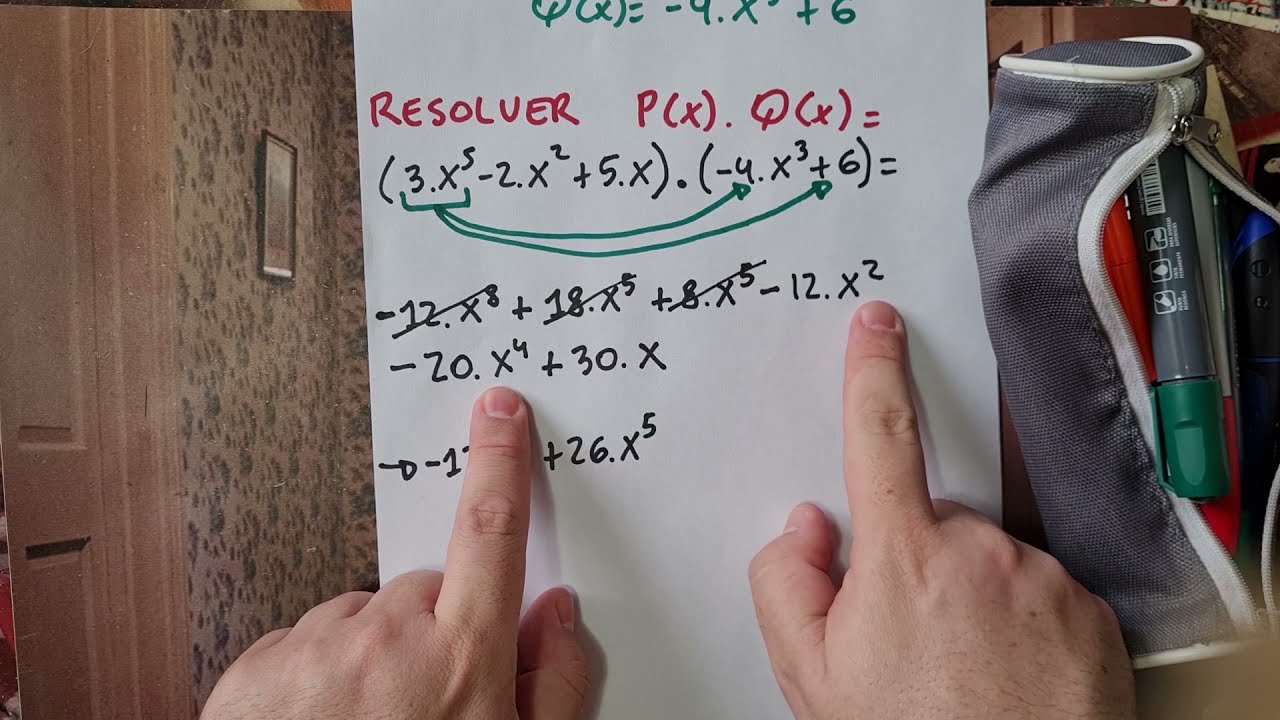 Q(x)= -4.x³ + 6
RESOLVER P(x). Q(x)=
(3.x⁵-2.x²+5.x).(-4.x³+6)=
-12.x⁸ + 18.x⁵ +8.x⁵-12.x²
-20.x⁴+30.x
→-1 +26.x⁵